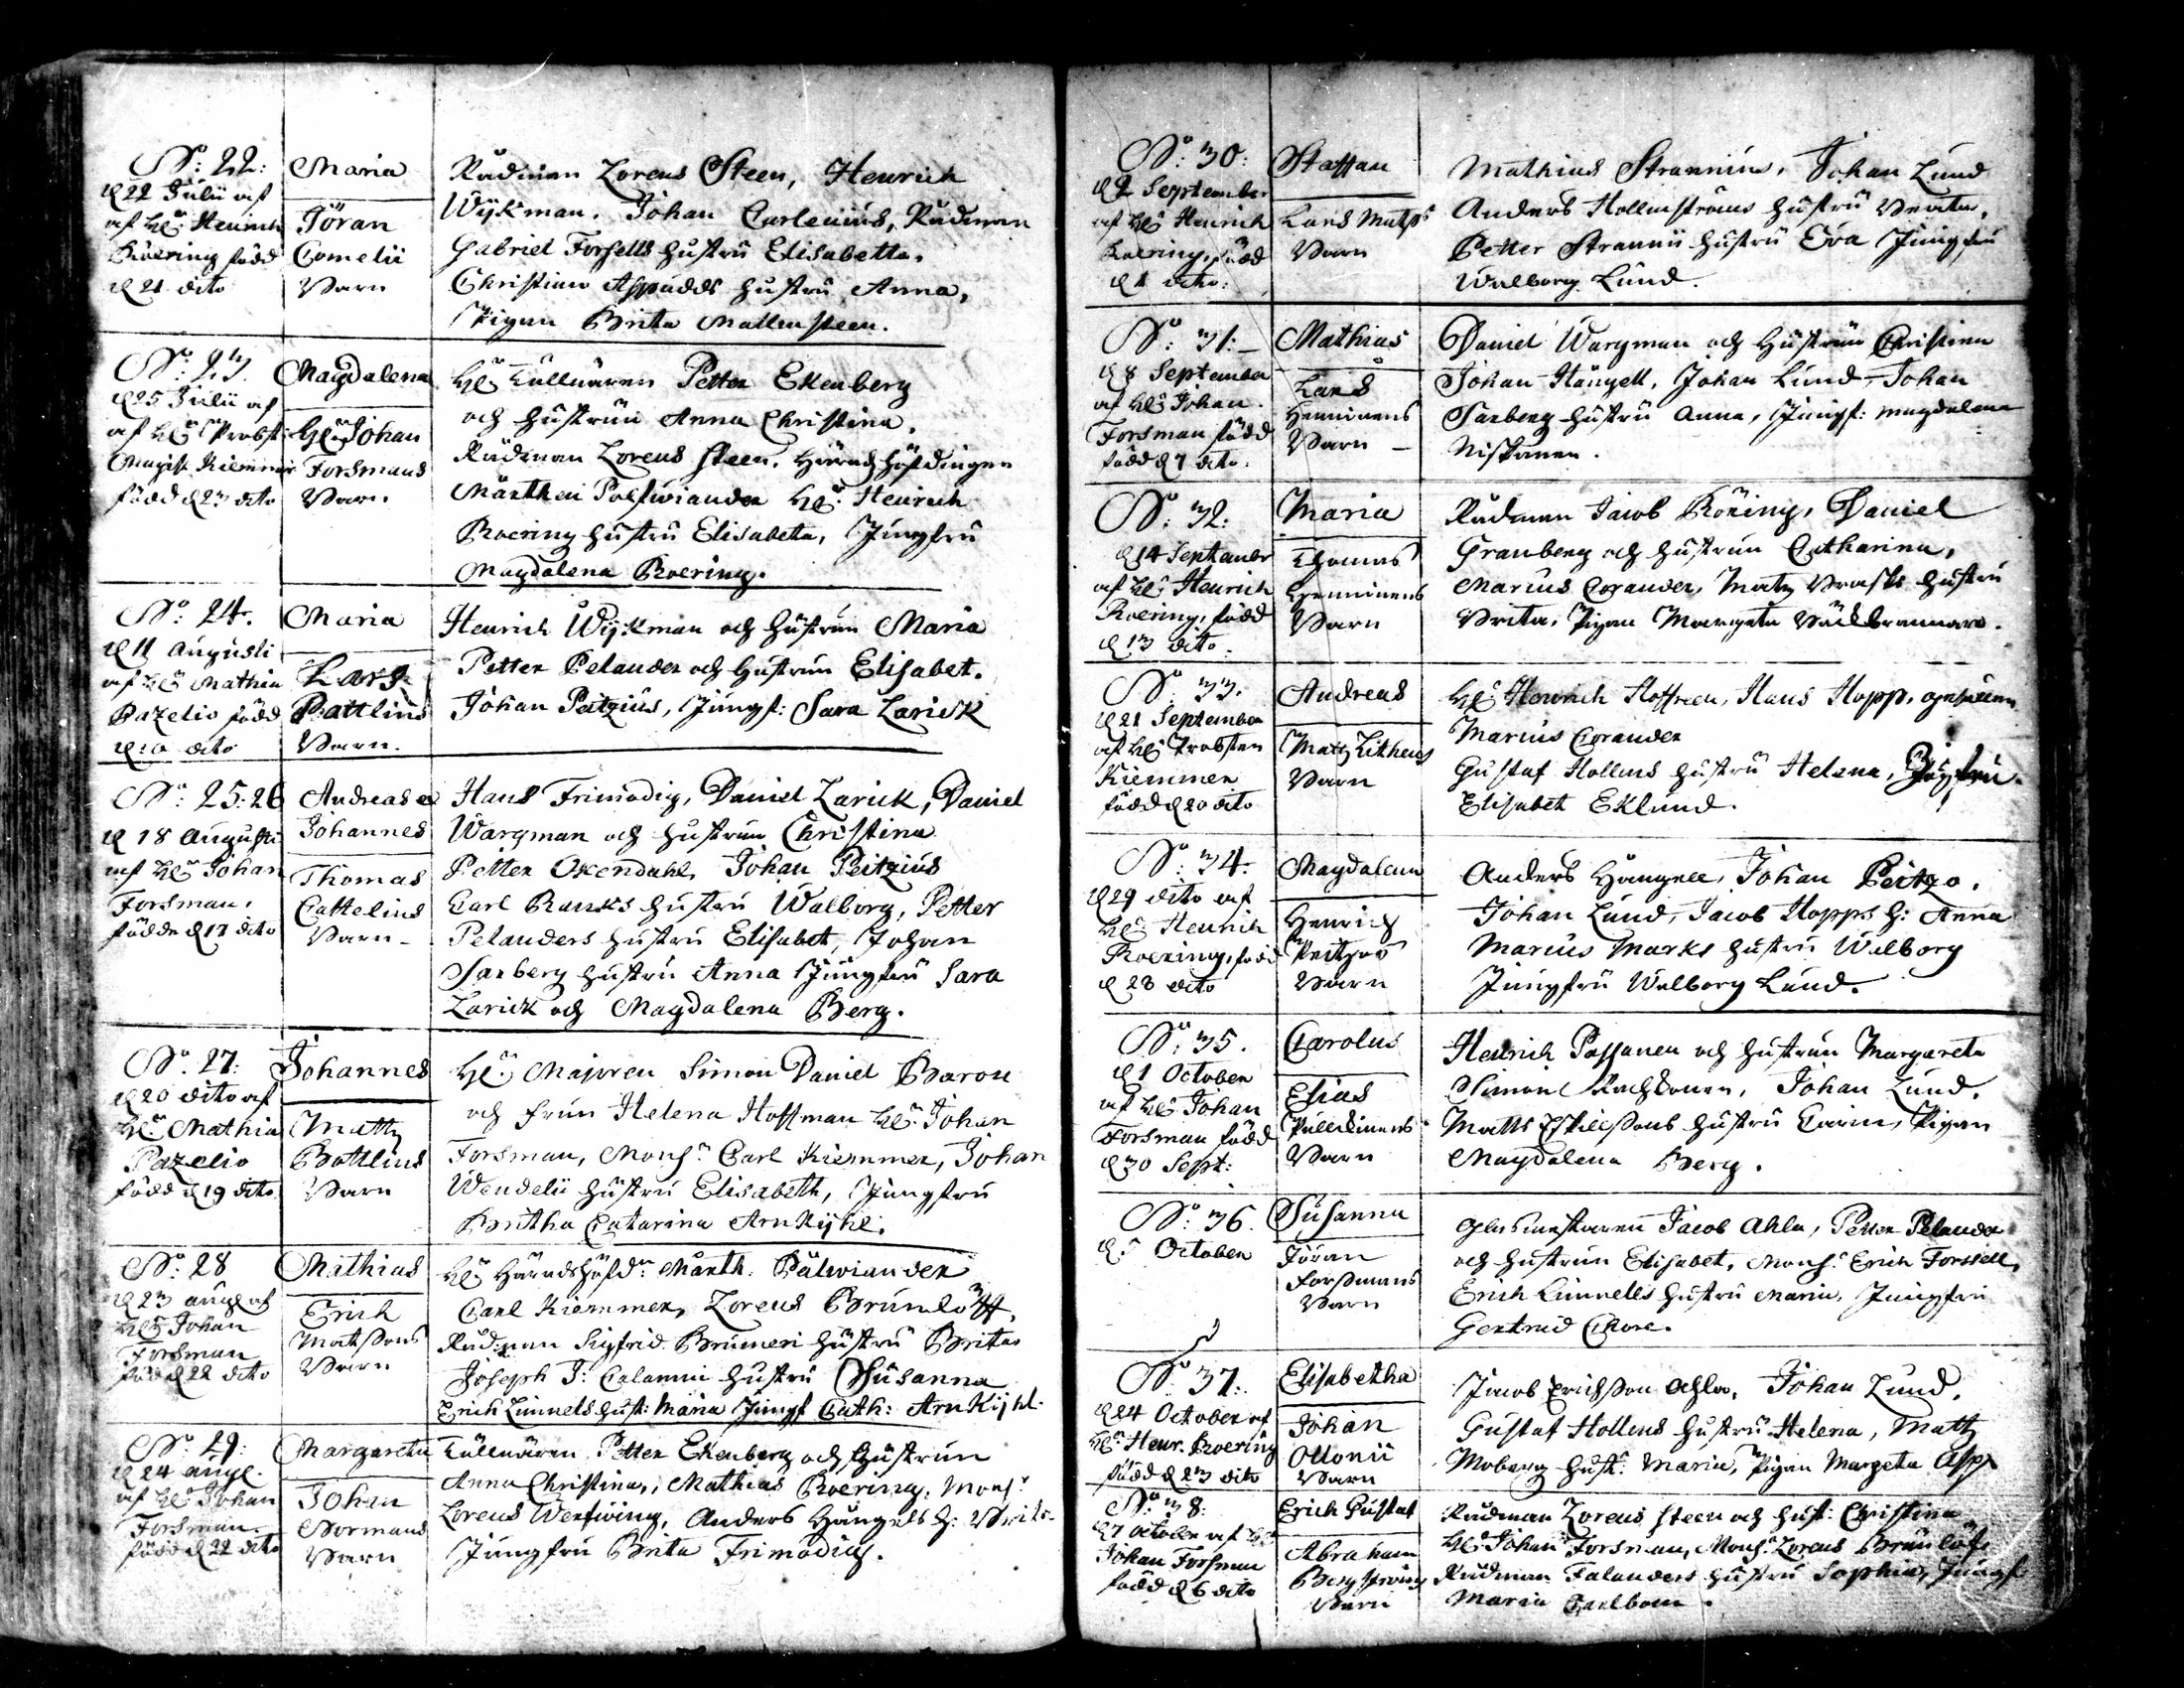 No: 22:
d 22 Julii af
af Hr Henrich
Roering född
d 21 dito
Maria
Jöran
Cornelii
Barn
Rådman Lorens Steen, Henrich
Wijkman, Johan Carlenius, Rådman
Gabriel Forsells hustru Elisabetta,
Christian Aspudds hustru Anna,
Pigan Brita Mattensteen.
No: 23.
d 25 Julii af
af Hr Probst
Magist Kiemmer
född d 23 dito
Magdalena
Hr Johan
Forsmans
Barn.
Hr Tullnären Petter Ekenberg
och hustrun Anna Christina,
Rådman Lorens Steen, Häradshöfdingen
Märthen Polwiander Hr Henrich
Roering hustru Elisabeta, Jungfru
Magdalena Roering.
No: 24.
d 11 Augusti
af Hr Mathia
Pazelio född
d 10 dito
Maria
Lars
Battlins
Barn.
Henrich Wijkman och hustrun Maria
Petter Pelander och hustrun Elisabet.
Johan Peitzius, Jungf: Sara Larick
No: 25. 26
d 18 Augusti
af Hr Johan
Forsman,
födde d 17 dito
Andreas e
Johannes
Thomas
Cattelins
Barn
Hans Frimodig, Daniel Larick, Daniel
Wargman och hustrun Christina
Petter Oxendahl, Johan Peitzius
Carl Ranks hustru Walborg, Petter
Pelanders hustru Elisabet, Johan
Saxberg hustru Anna Jungfru Sara
Larick och Magdalena Berg.
No. 27:
d 20 dito af
Hr Mathia
Pazelio
född d 19 dito
Johannes
Matts
Battlins
Barn
Hr Majoren Simon Daniel Baron
och frun Helena Hoffman Hr Johan
Forsman, Monsr Carl Kiemmer, Johan
Wendelii hustru Elisabeth, Jungfru
Britha Catarina Arnkijhl.
No: 28
d 23 aug af
Hr Johan
Forsman
född d 22 dito
Mathias
Erich
Matssons
Barn
Hr Häradshöfdn Märth: Pälwiander
Carl Kiemmer, Lorens Brunlöff,
Rådman Sigfrid Brumeri hustru Brita
Joseph J: Calamnii hustru Susanna
Erich Linnels hust: Maria Jungf Cath: Arnkijhl.
No. 29:
d 24 aug.
af Hr Johan
Forsman.
född d 22 dito
Margareta
Johan
Normans
Barn
Tullnären Petter Ekenberg och hustrun
Anna Christina, Mathias Roering, Monsr
Lorens Wertwing, Anders Hängels h: Brita
Jungfru Brita Frimodig.
No: 30:
d 2 September
af Hr Henrich
Roering, född
d 1 dito:
Staffan
Lars Matss
Barn
Mathias Strannius, Johan Lund
Anders Hollmströms hustru Beata,
Petter Strannii hustru Eva Jungfru
Walborg Lund.
No: 31:
d 8 September
af Hr Johan
Forsman född
född d 7 dito.
Mathias
Lars
Henninens
Barn
Daniel Wargman och hustrun Christina
Johan Hängell, Johan Lund, Johan
Saxberg hustru Anna, Jungf: Magdalena
Niskanen.
No: 32:
d 14 September
af Hr Henrich
Roering, född
d 13 dito.
Maria
Thomas
Henninens
Barn
Rådman Jacob Röring, Daniel
Granberg och hustrun Catharina,
Marius Corander, Matz Brasks hustru
Brita, Pigan Margeta
No: 33.
d 21 September
af Hr Probsten
Kiemmer
född d 20 dito
Andreas
Matz Litheus
Barn
Hr Henrich Hoffreen, Hans Hopp,
Marius Corander
Gustaf Hollens hustru Helena, Jungfru
Elisabet Eklund.
No: 34.
d 29 dito af
Hr Henrich
Roering, född
d 28 dito
Magdalena
Henrich
Peitzos
Barn
Anders Hängell, Johan Peitzo,
Johan Lund, Jacob Hopps h: Anna
Marius Marks hustru Walborg
Jungfru Walborg Lund.
No: 35.
d 1 October
af Hr Johan
Forsman född
d 30 Sept:
Carolus
Elias
Pulliainens
Barn
Henrich Passanen och hustrun Margareta
Simon Rachkonen, Johan Lund,
Matts Eskilssons hustru Carin, Pigan
Magdalena Berg.
No: 36.
d 5 October
Susanna
Jöran
Forssmans
Barn
Glasmestaren Jacob Ahla, Petter Pelander
och hustrun Elisabet, Monsr Erich Forssell,
Erich Linnells hustru Maria, Jungfru
Gertrud Chore.
No. 37:
d 24 October af
Hr Henr. Roering
född d 23 dito
Elisabetha
Johan
Ottonii
Barn
Jacob Erichsson Achla, Johan Lund,
Gustaf Hollens hustru Helena, Matz
Moberg hust: Maria, Pigan Margeta Asp
No 38:
d 7 October af Hr
Johan Forsman
född d 6 dito
Erich Gustaf
Abraham
Bergströms
Barn
Rådman Lorens Steen och hust: Christina
Hr Johan Forsman, Monsr Lorens Brunlöf,
Rådman Falanders hustru Sophia, Jungf
Maria Carlbom.